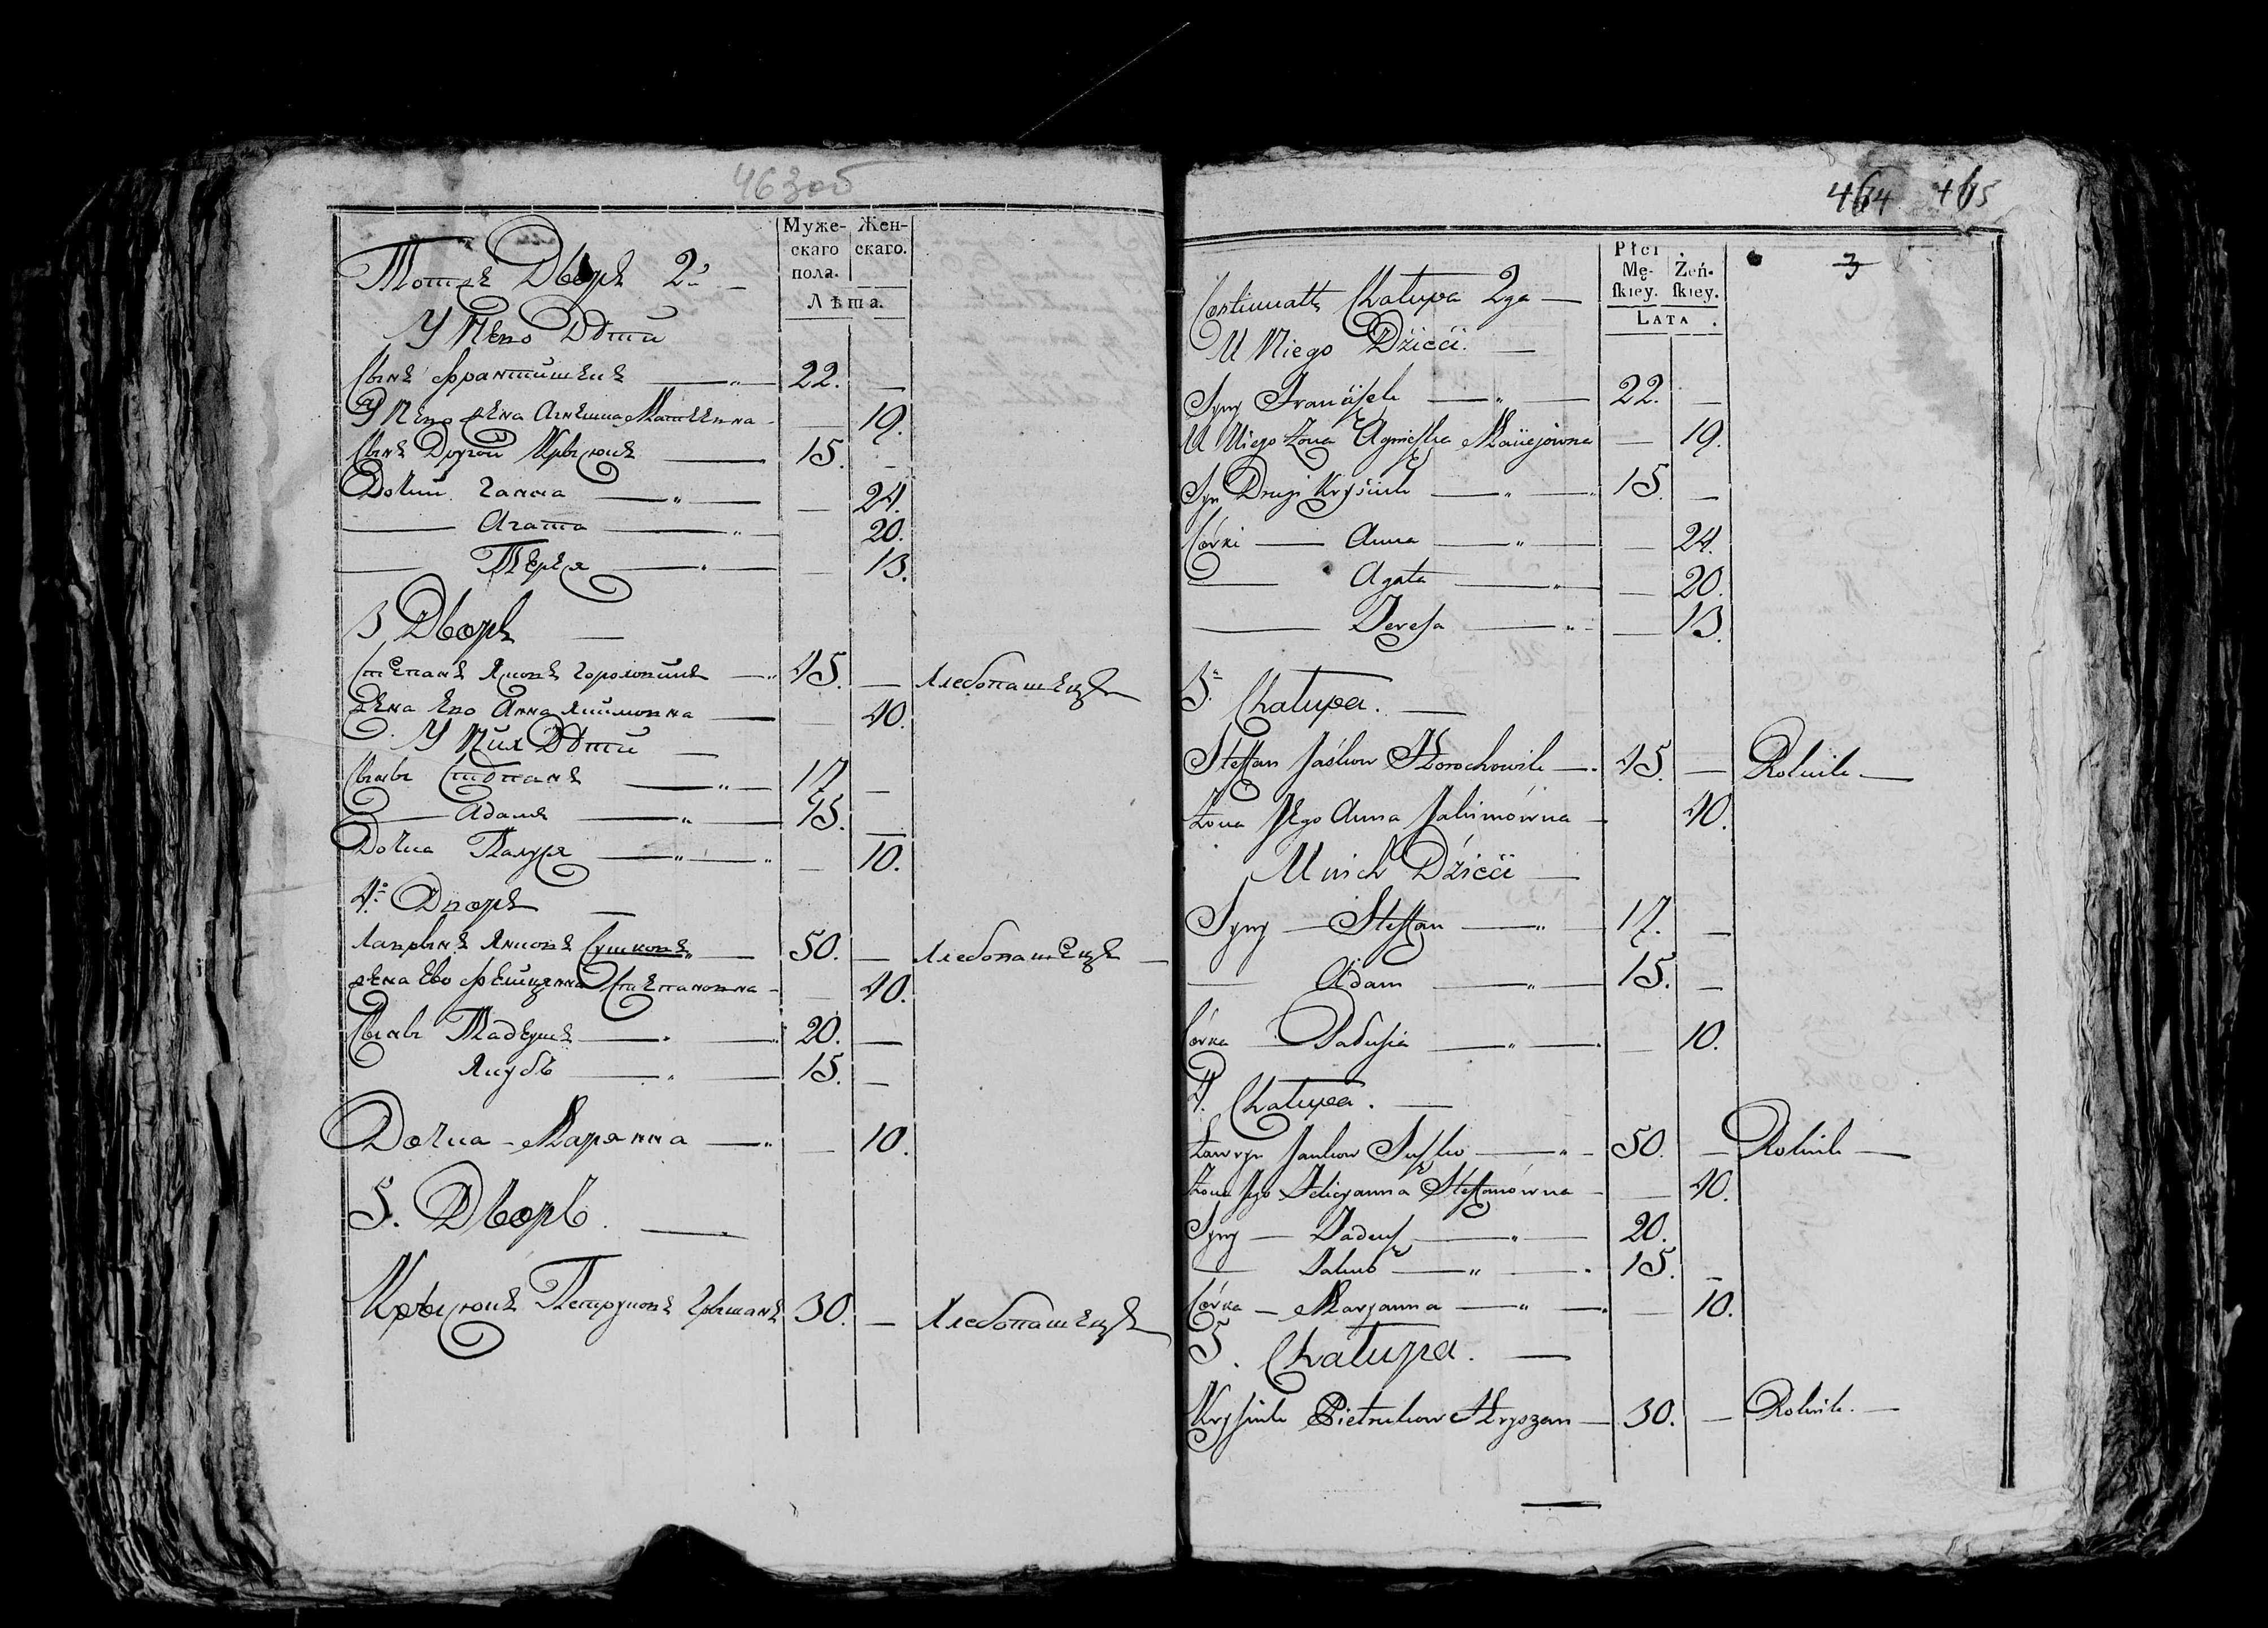 463об
Муже- Жен-
скаго скаго.
пола.
Лѣта.
Тотже Дворъ 2й —
У Него Дѣти
Сынъ Франтишекъ — 22. —
У Него жена Агнешка Матеевна — 19.
Сынъ Другой Крысюкъ — 15. —
Дочки Ганна — 24.
— Агата — 20.
— Тереся — 13.
3 Дворъ —
Степанъ Ясковъ — 45. — Хлебопашецъ
жена Ево Анна Якимовна — 40.
У Них Дѣти —
Сыны Стѣпанъ — 17. —
— Адамъ — 15. —
Дочка — 10.
4й Дворъ —
Лаврынъ Янковъ Сушковъ — 50. — Хлебопашецъ —
жена Ево Фелицянна Степановна — 40.
Сыны Тадеушъ — 20. —
Якубъ — 15. —
Дочка — Марянна — 10.
5. Дворъ. —
Крысюкъ Петруковъ Гришанъ 30. — Хлебопашецъ
464 465
3
Płci
Mę- Żeń-
skiey. skiey.
LATA.
Continuatt Chałupa 2ga —
U Niego Dzieci. —
Syny Franciszek — 22. —
U Niego Żona Agnieszka Maciejówna — 19.
Syn Drugi Krysiuk — 15. —
Córki — Anna — 24.
— Agata — 20.
— Teresa — 13.
3. Chałupa. —
Steffan Jaśkow Horochowik — 45. — Rolnik —
Żona Jego Anna Jakimówna — 40.
U nich Dzieci —
Syny — Steffan — 17. —
— Adam — 15. —
Córka — 10.
4. Chałupa. —
Ławryn Jankow Suszko — 50. — Rolnik —
Żona Jego Felicyanna Steffanówna — 40.
Syny — Tadeusz — 20.
— Jakub — 15. —
Córka — Maryanna — 10.
5. Chałupa. —
Krysiuk Pietrukow Hryszan — 30. — Rolnik. —